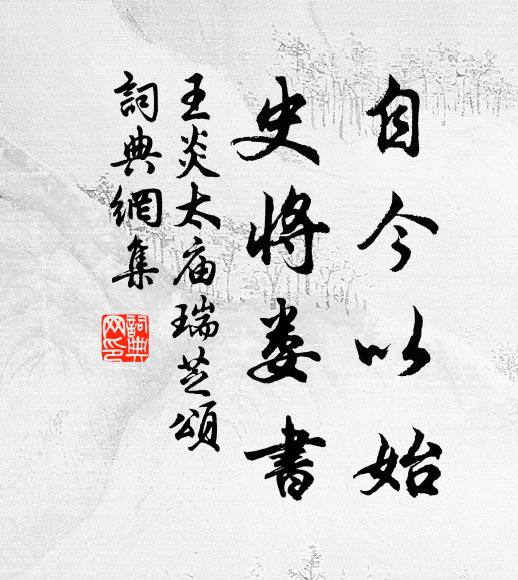 自今以始
史将娄書
王炎太庙瑞芝頌
詞典網集
詞典網印